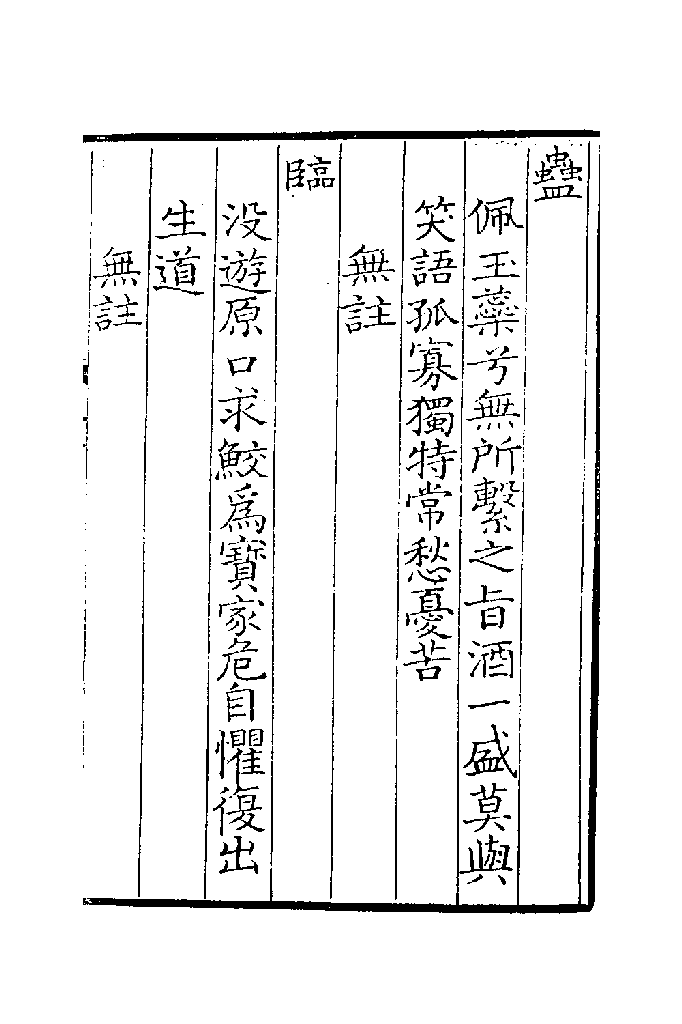 蠱
佩玉蘂兮無所繫之旨酒一盛莫與
笑語孤寡獨特常愁憂苦
無註
臨
没遊原口求鮫為寶家危自懼復出
生道
無註